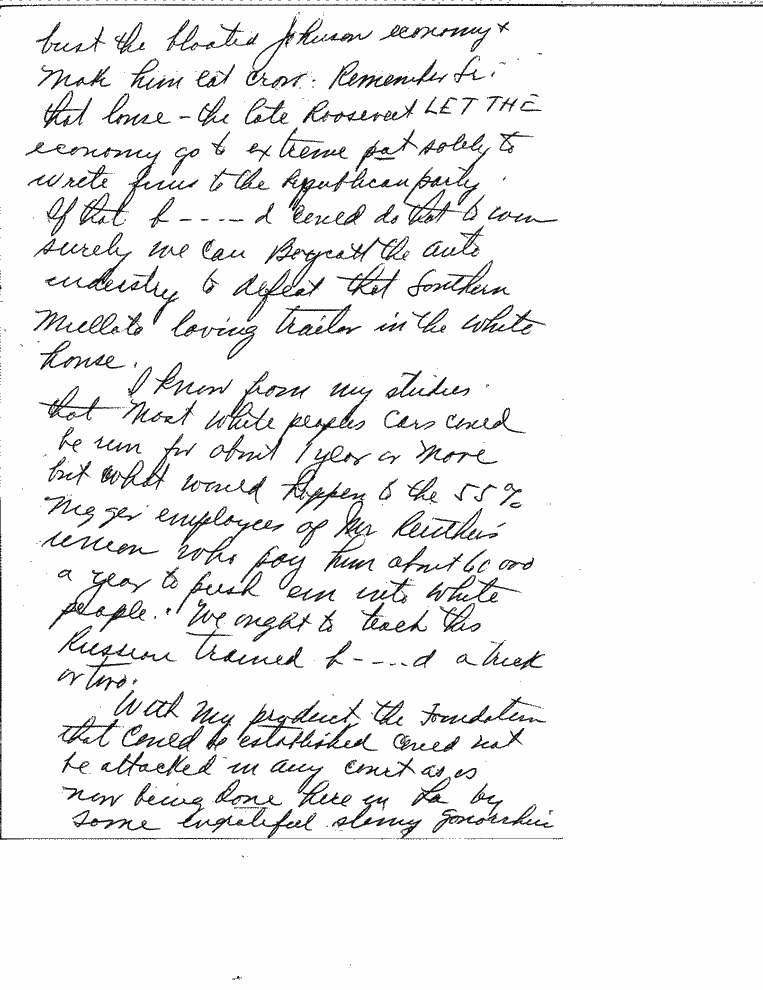 bust the bloated Johnson economy &
Make him eat crow. Remember Sir:
that louse - the late Roosevelt LET THE
economy go to extreme pot solely to
write finis to the Republican party.
If that b----d coued do that to win
surely we can Boycott the auto
industry to defeat that Southern
Mullato loving traitor in the white
house.
I know from my studies
that most white peoples cars coued
be run for about 1 year or more
but what would happen to the 55%
nigger employees of Mr Reuther's
union who pay him about 60 000
a year to push em into white
people. We ought to teach this
Russian trained b----d a trick
or two.
With my product, the Foundation
that coued be established coued not
be attacked in any court as is
now being done here in La by
some ungrateful slimy